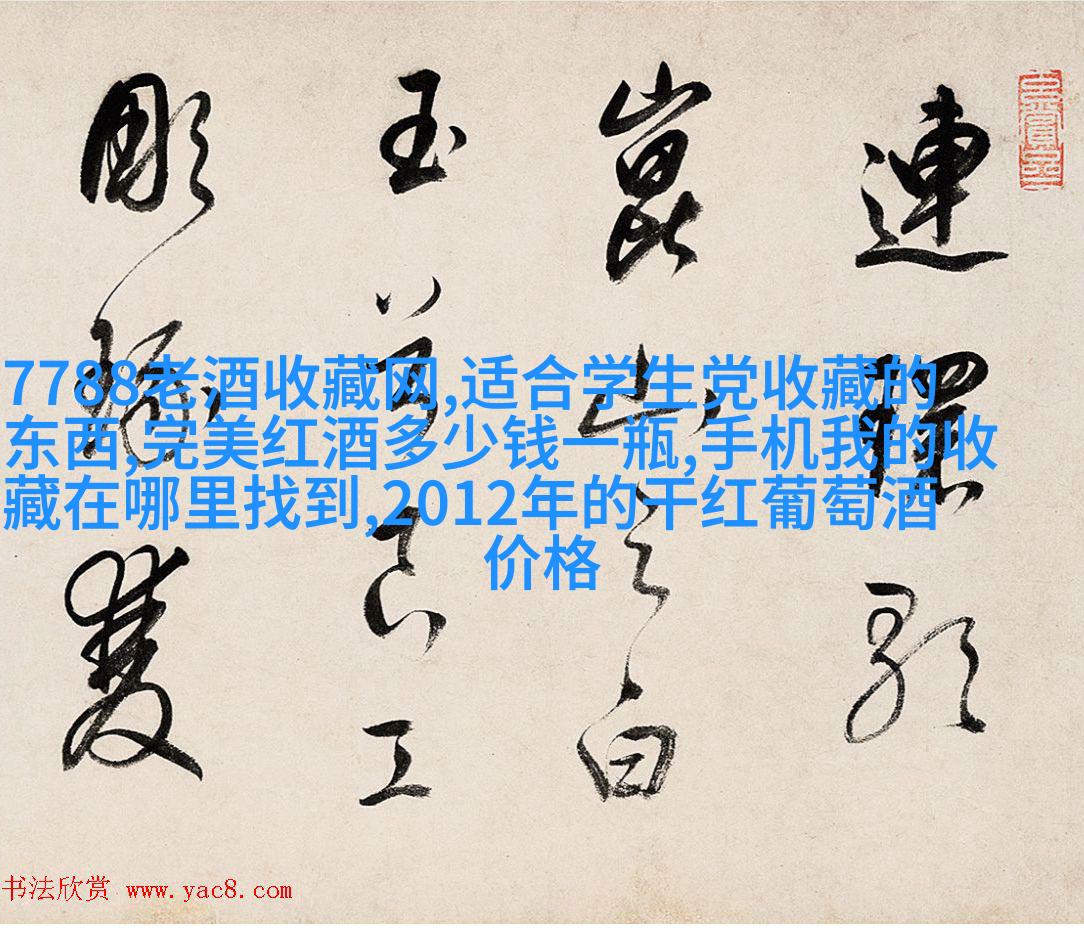 連環歌
崑山之白
玉良工
彫雙
7788老酒收藏网,适合学生党收藏的
东西,完美红酒多少钱一瓶,手机我的收
藏在哪里找到,2012年的干红葡萄酒
价格
书法欣赏 www.yac8.com